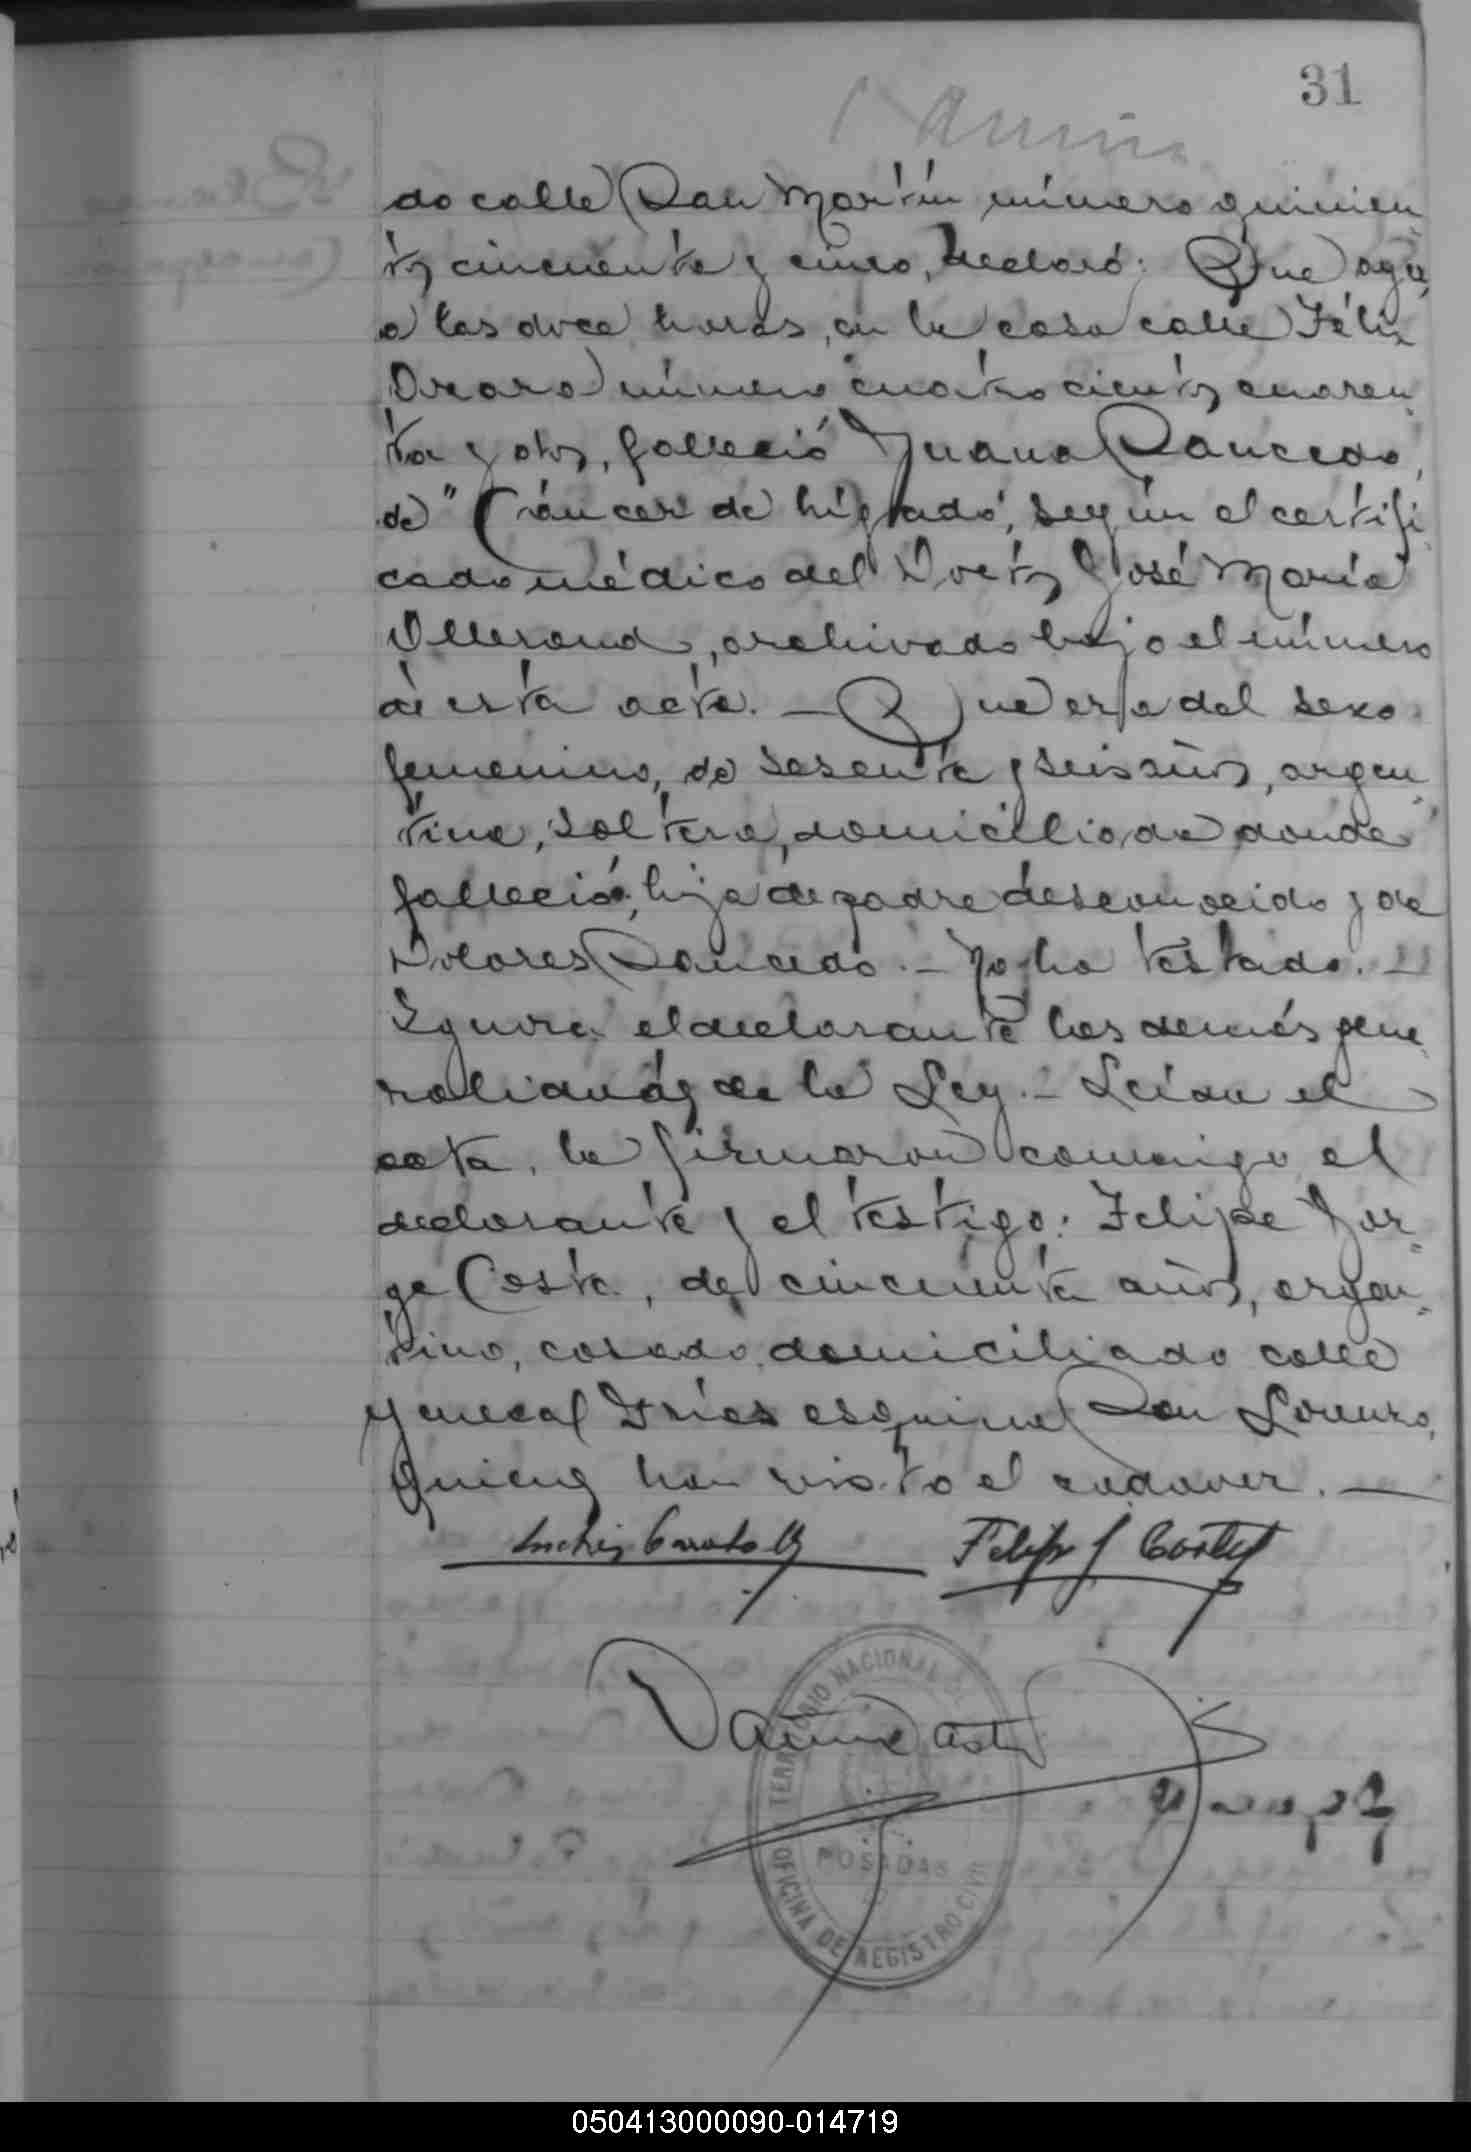 31
do calle San Martín número quinien
tos cincuenta y cinco, declaró: Que ayer,
a las doce horas, en la casa calle Félix
número cuatrocientos cuaren
ta y dos, falleció Juana Saucedo,
de "Cáncer de hígado", según el certifi
cado médico del Doctor José María
archivado bajo el número
de esta acta. — Que era del sexo
femenino, de sesenta y seis años, argen
tina, soltera, domiciliada donde
falleció, hija de padre desconocido y de
Dolores Saucedo. — No ha testado. —
Ignora el declarante las demás gene
ralidades de la Ley. — Leída el
acta, la firmaron conmigo el
declarante y el testigo: Felipe Jor-
ge Costa, de cincuenta años, argen-
tino, casado, domiciliado calle
General Frías esquina San Lorenzo,
quienes han visto el cadaver. —
Felipe J Costa
TERRITORIO NACIONAL DE
POSADAS
OFICINA DE REGISTRO CIVIL
050413000090-014719